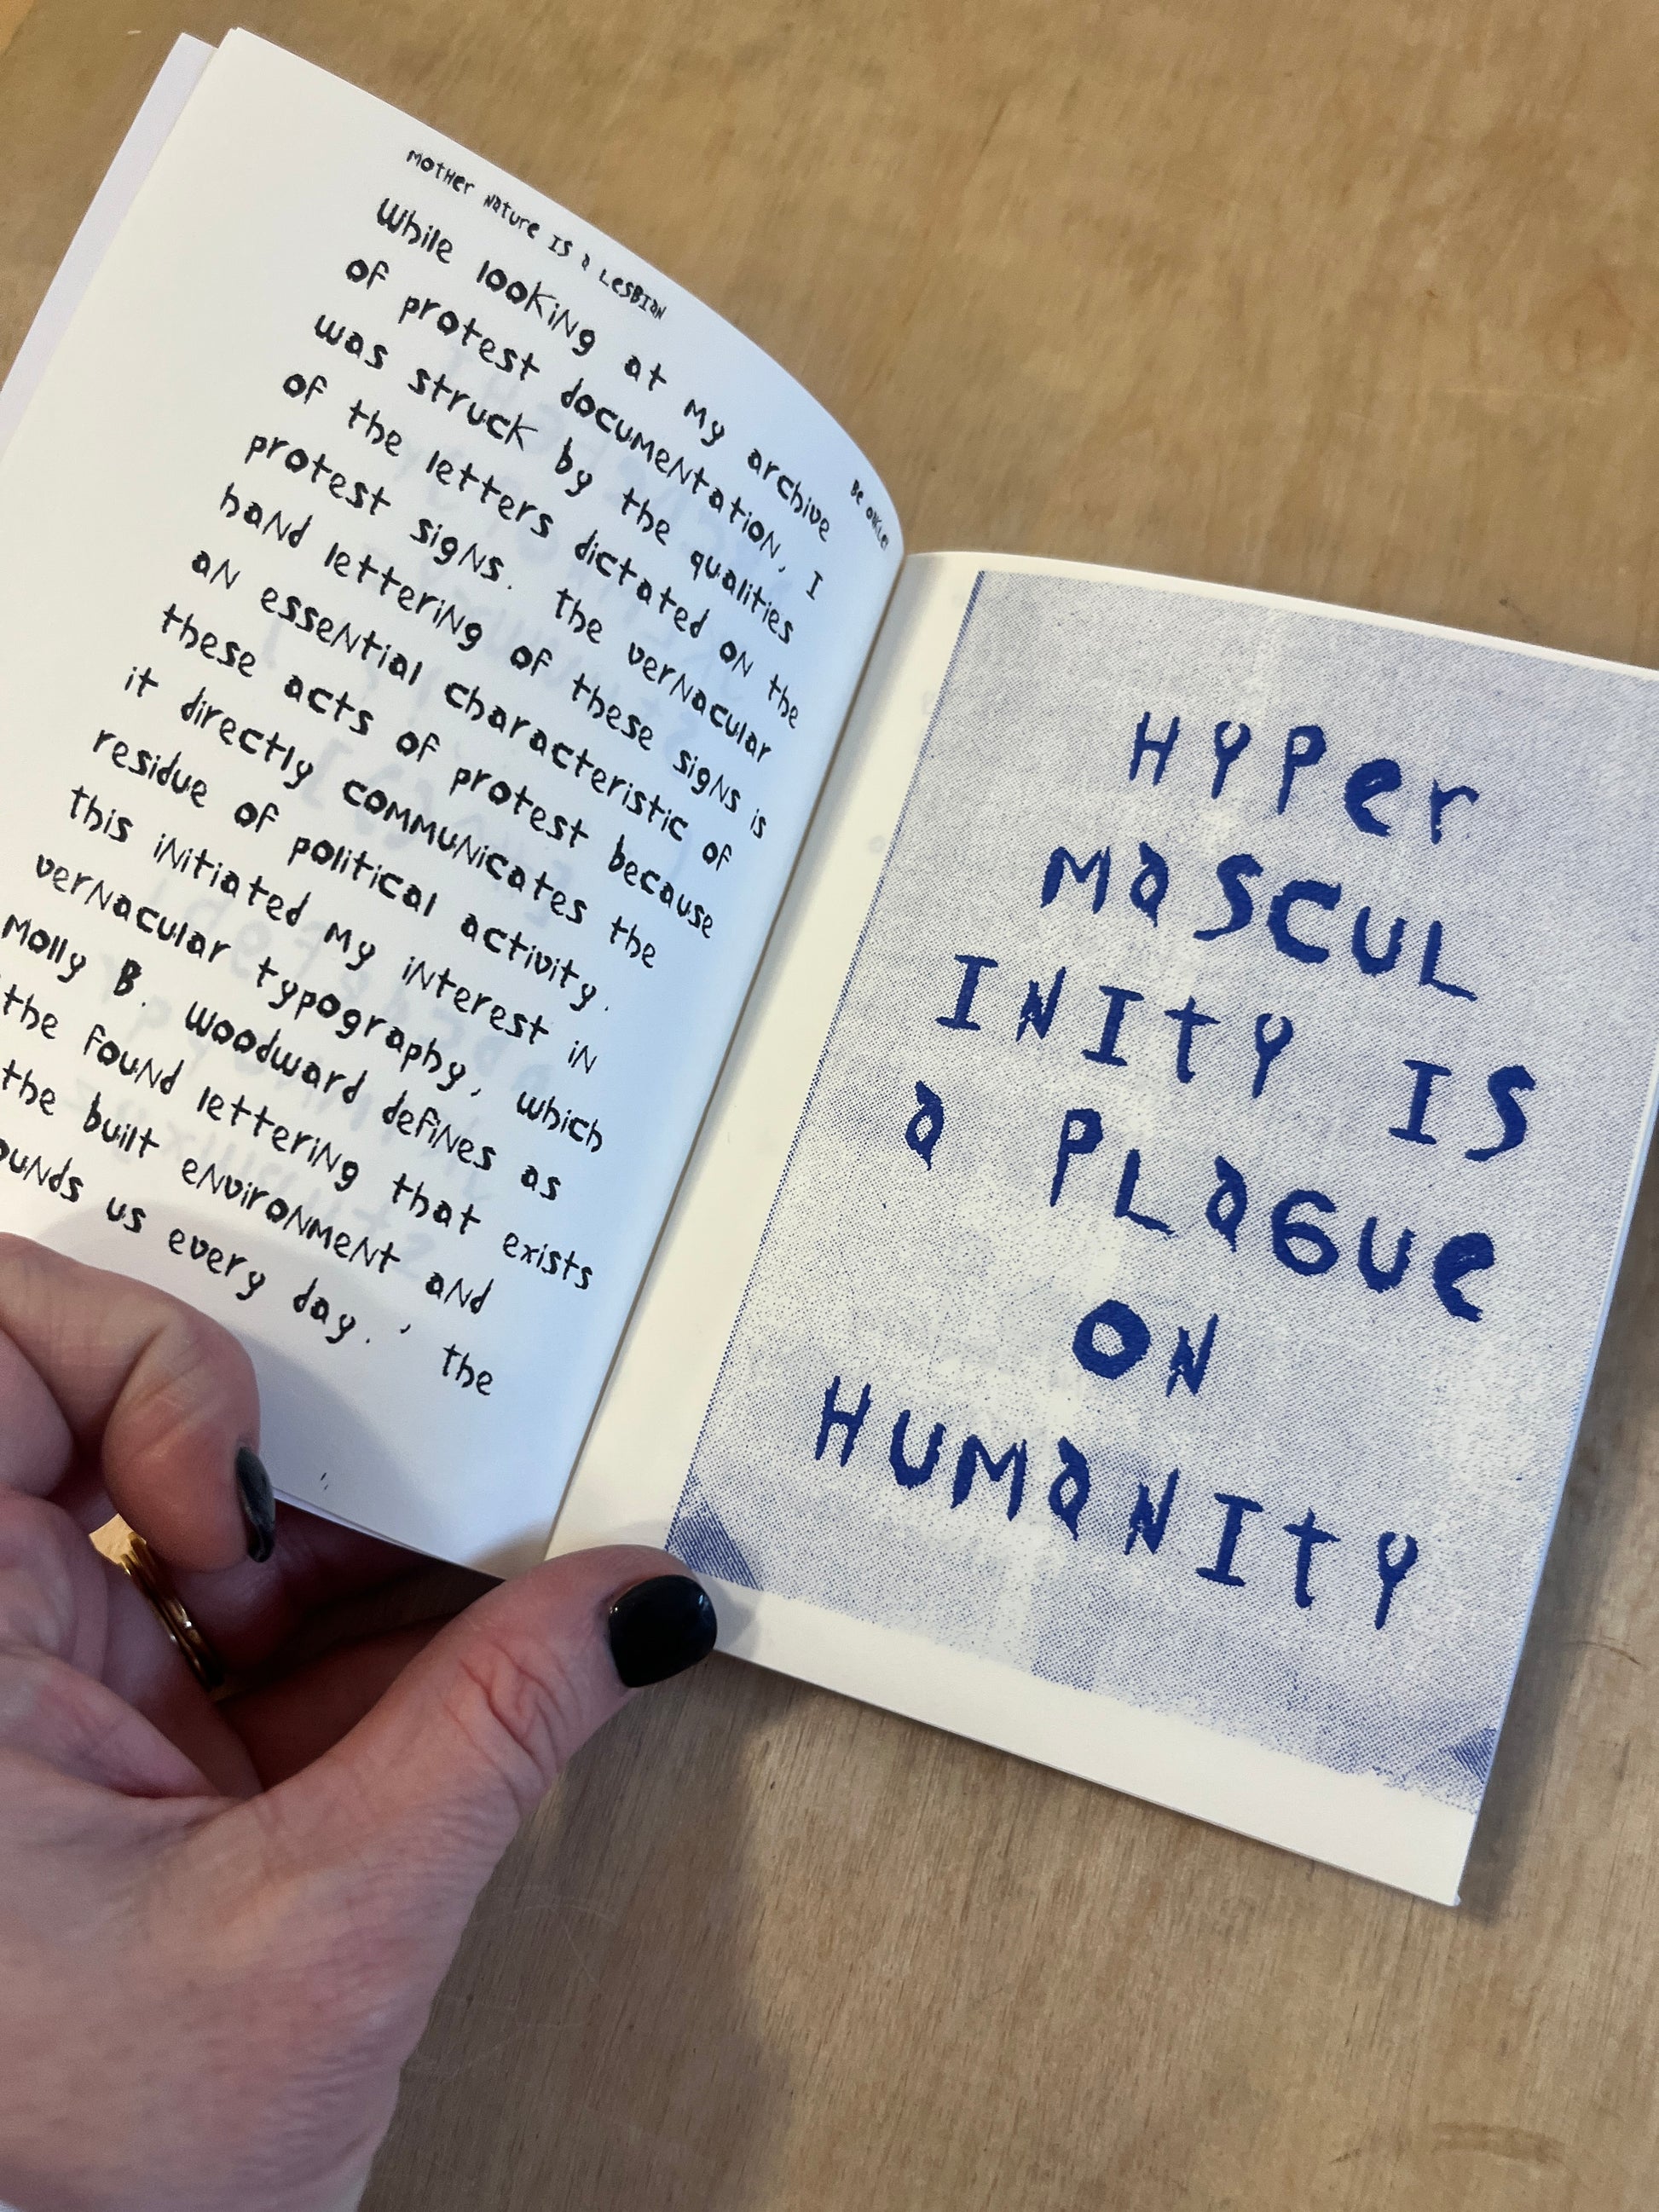 Mother Nature Is a Lesbian
While looking at my archive
of protest documentation, I
was struck by the qualities
of the letters dictated on the
protest signs. The vernacular
hand lettering of these signs is
an essential characteristic of
these acts of protest because
it directly communicates the
residue of political activity.
This initiated my interest in
vernacular typography, which
Molly B. Woodward defines as
'the found lettering that exists
the built environment and
ounds us every day.' The
HYPer
MaSCUL
INItY IS
a PLaGUe
ON
HUMaNItY